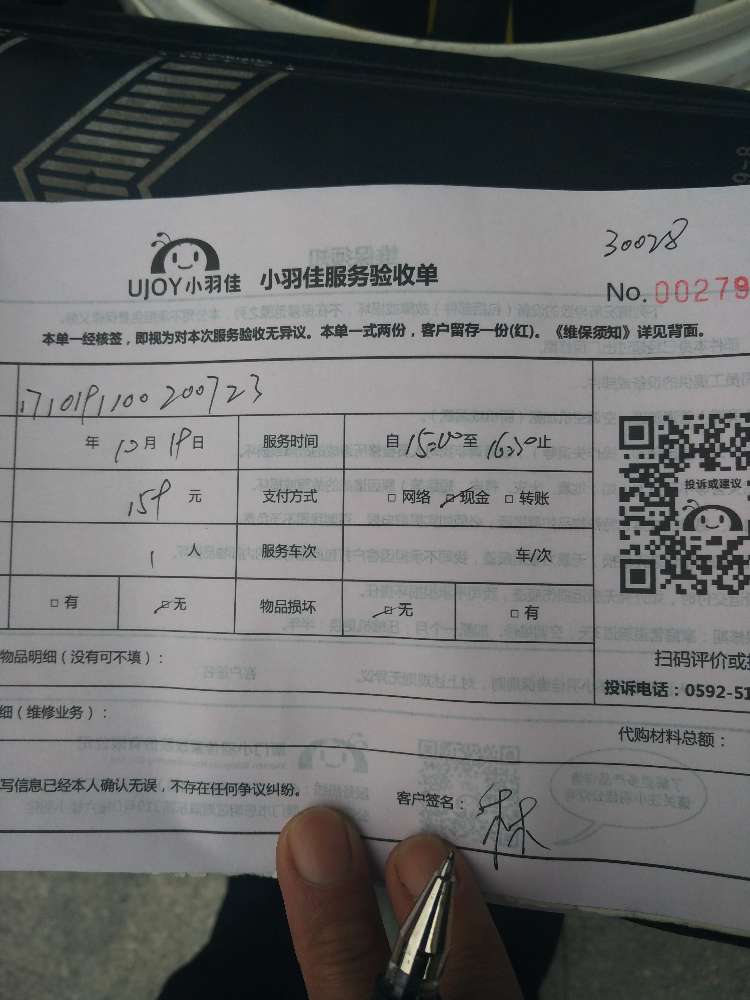 30028
UJOY小羽佳 小羽佳服务验收单
No. 00279
本单一经核签，即视为对本次服务验收无异议。本单一式两份，客户留存一份(红)。《维保须知》详见背面。
1710191100200723
年 10月 19日 服务时间 自 15:00 至 16:30 止
159 元 支付方式 □ 网络 □ 现金 □ 转账
投诉或建议
1 人 服务车次 车/次
□ 有 □ 无 物品损坏 □ 无 □ 有
物品明细（没有可不填）：
扫码评价或
投诉电话：0592-51
细（维修业务）：
代购材料总额：
写信息已经本人确认无误，不存在任何争议纠纷。
客户签名： 林